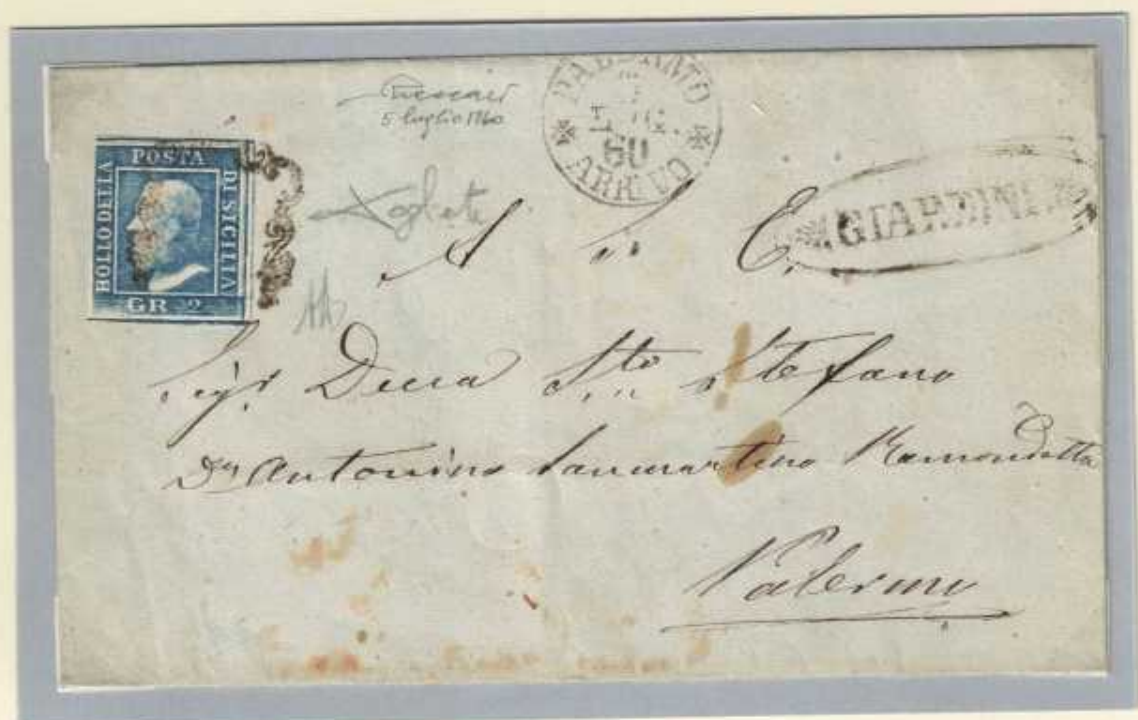 5 luglio 1860
PALERMO
60
ARRIVO
BOLLO DELLA
POSTA
DI SICILIA
GR 2
GIARDINI
A S. E.
Sigr Duca Sto Stefano
Dn Antonino Sanmartino Ramondetta
Palermo